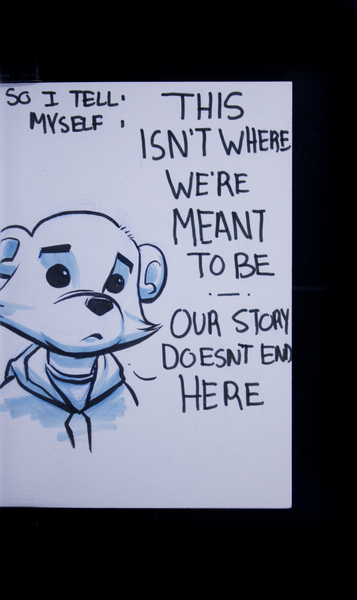 SO I TELL
MYSELF ,
THIS
ISN'T WHERE
WE'RE
MEANT
TO BE
. — .
OUR STORY
DOESNT END
HERE